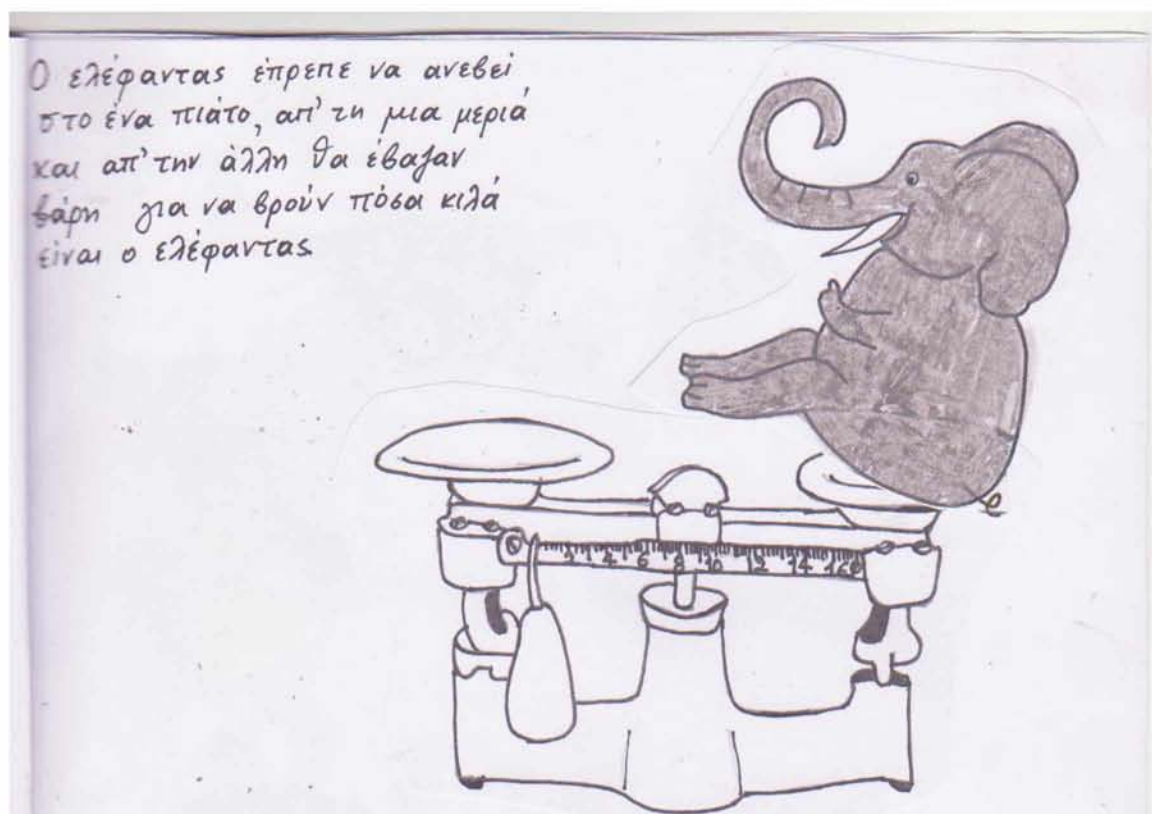 Ο ελέφαντας έπρεπε να ανεβεί
στο ένα πιάτο, απ' τη μια μεριά
και απ' την άλλη θα έβαζαν
βάρη για να βρούν πόσα κιλά
είναι ο ελέφαντας
2 4 6 8 10 12 14 16